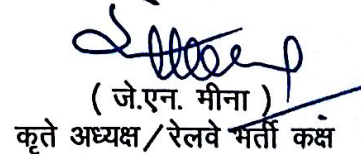 ( जे.एन. मीना )
कृते अध्यक्ष/रेलवे भर्ती कक्ष